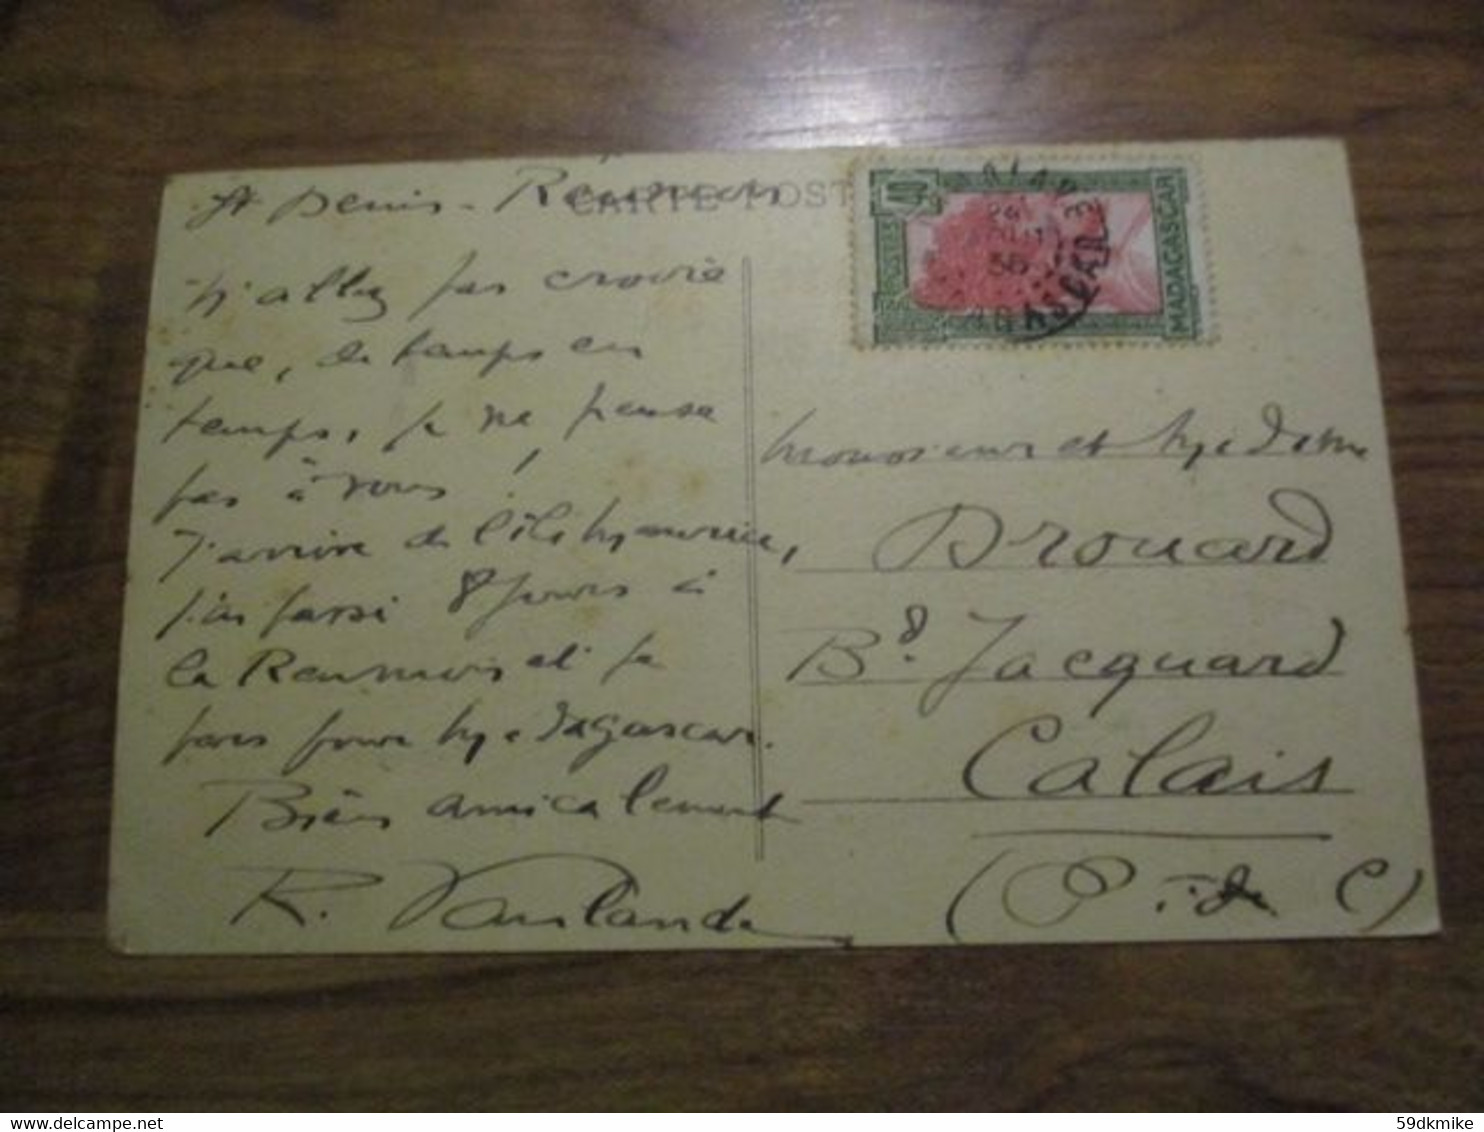 St Denis - Réunion
CARTE POST
N'allez pas croire
que, de temps en
temps, je ne pense
pas à vous!
J'arrive de l'île Maurice,
j'ai passé 8 jours à
la Réunion et je
pars pour Madagascar.
Bien amicalement
R.
40
POSTES
MADAGASCAR
Monsieur et Madame
Drouard
Bd. Jacquard
Calais
(P. de C)
59dkmike